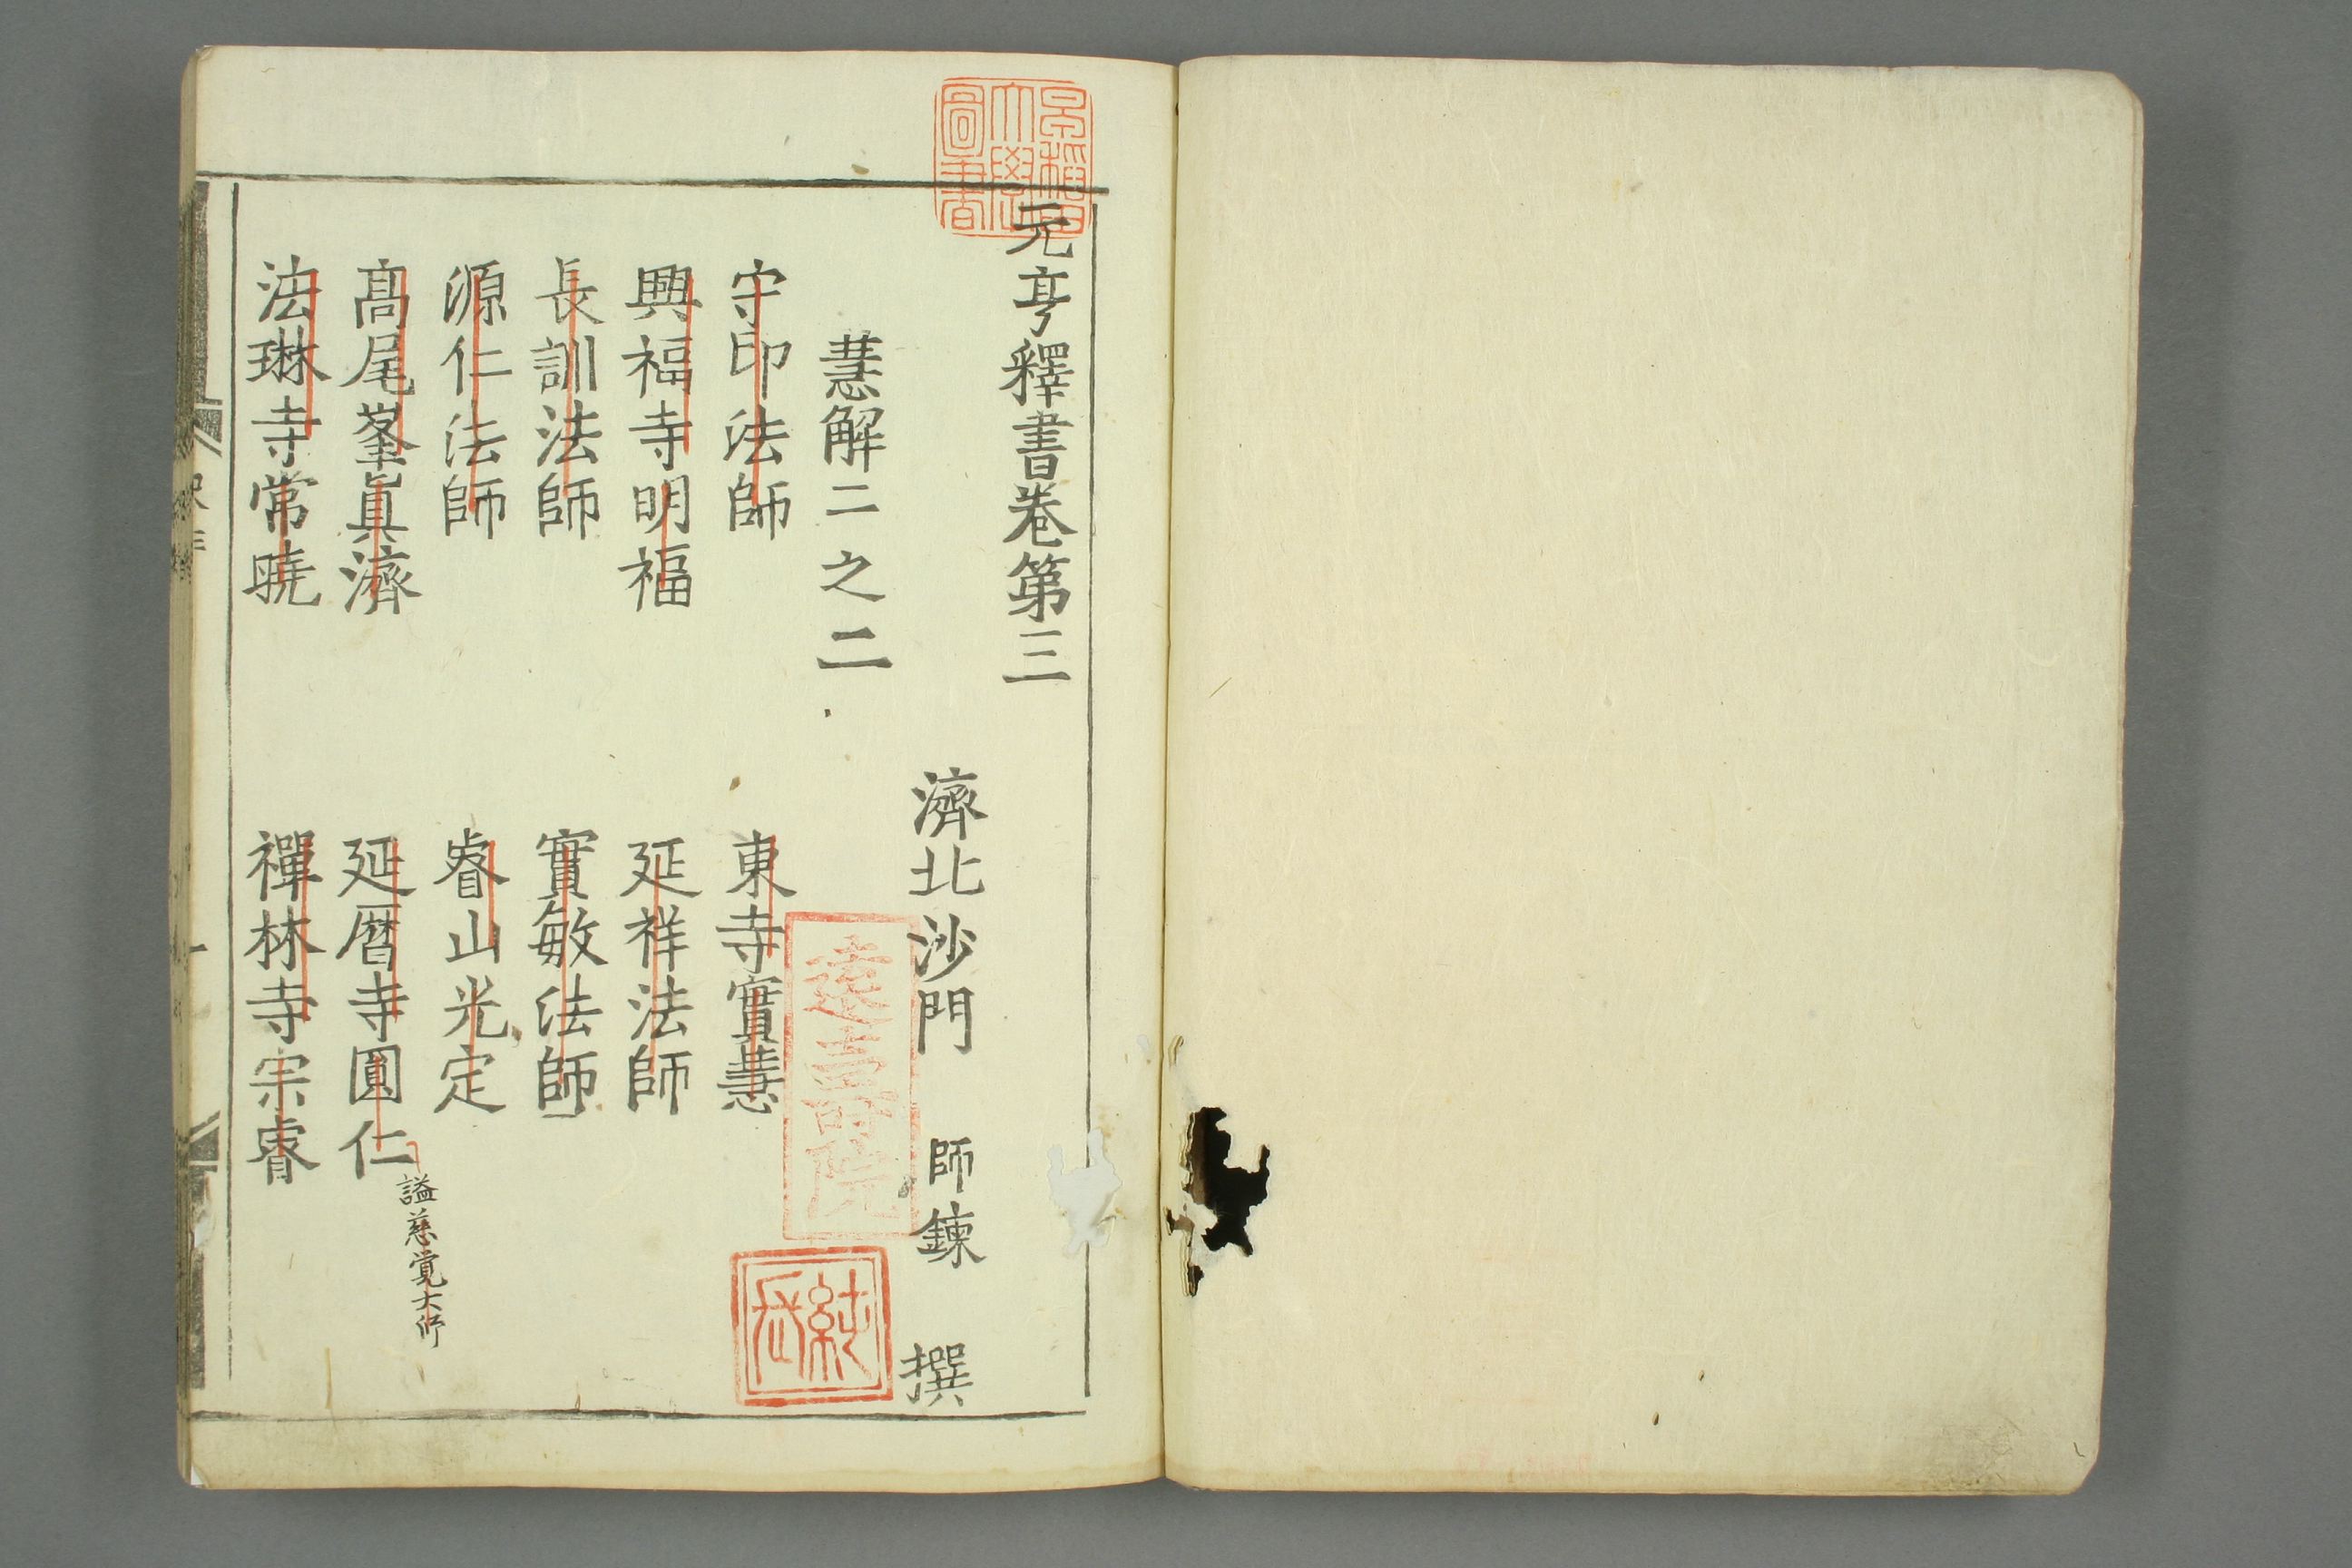 元亨釋書卷第三
濟北沙門 師鍊 撰
慧解二之二
守印法師 東寺實慧
興福寺明福 延祥法師
長訓法師 實敏法師
源仁法師 睿山光定
髙尾峯眞濟 延曆寺圓仁
謚慈覚大师
法琳寺常曉 禪林寺宗睿
早稲田大學圖書